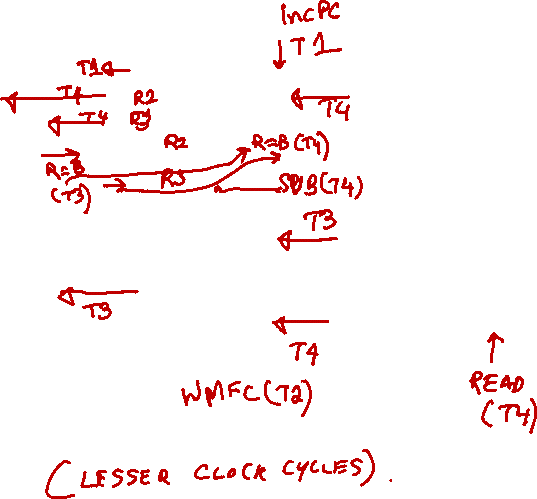 IncPC
T1
T1
T4
R2
T4
T4
R3
R2
R=B (T4)
R=B
(T3)
R3
SUB (T4)
T3
T3
T4
WMFC (T2)
READ
(T4)
(LESSER CLOCK CYCLES).